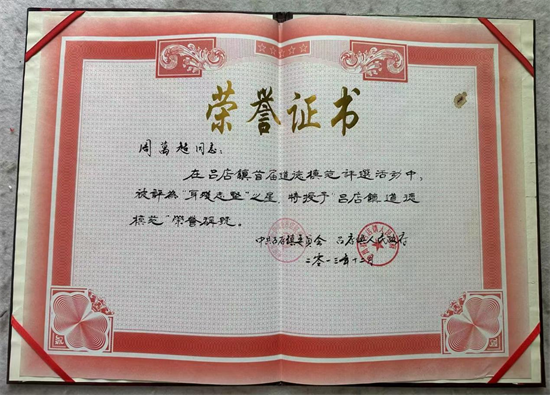 荣誉证书
周萬超同志：
在吕店鎮首届道德模范评選活动中，
被評為“身残志坚”之星，特授予“吕店鎮道德
模范”荣誉称號。
中共吕店镇委員会 吕店镇人民政府
二零一三年十二月